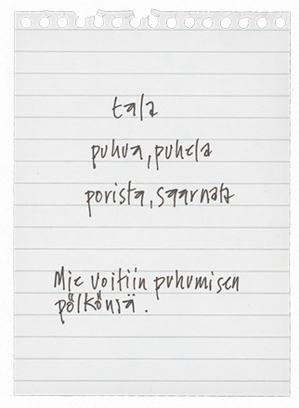 tala
puhua, puhela
porista, saarnata
Mie voitiin puhumisen
pölköniä.